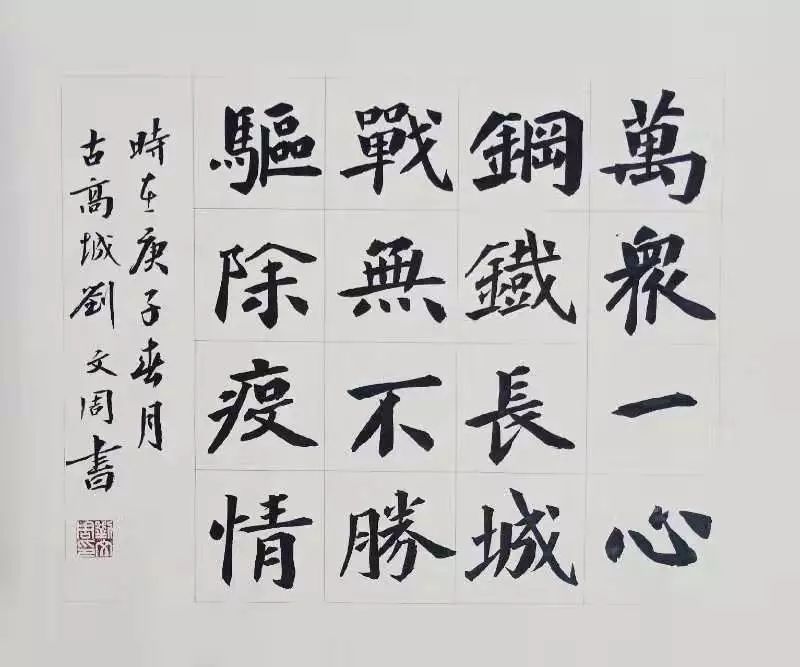 萬眾一心
鋼鐵長城
戰無不勝
驅除疫情
時在庚子春月
古高城劉文周書
劉文周印